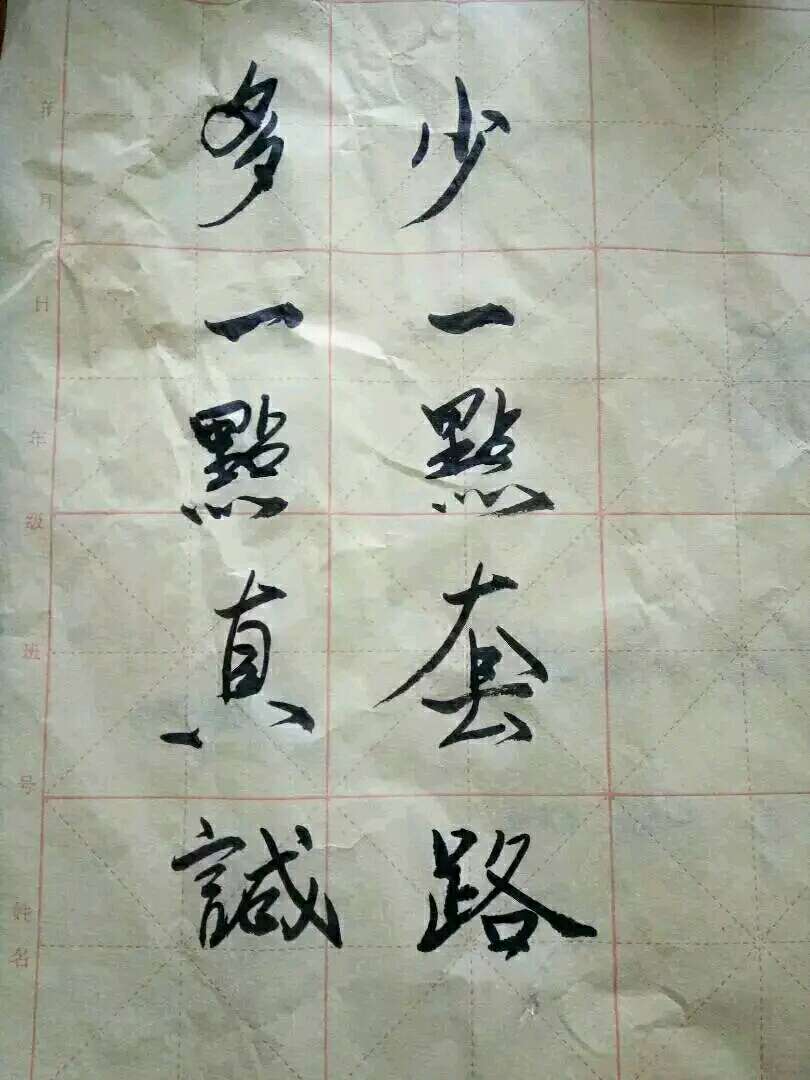 少一點套路
多一點真誠
年 月 日 年 级 班 号 姓名